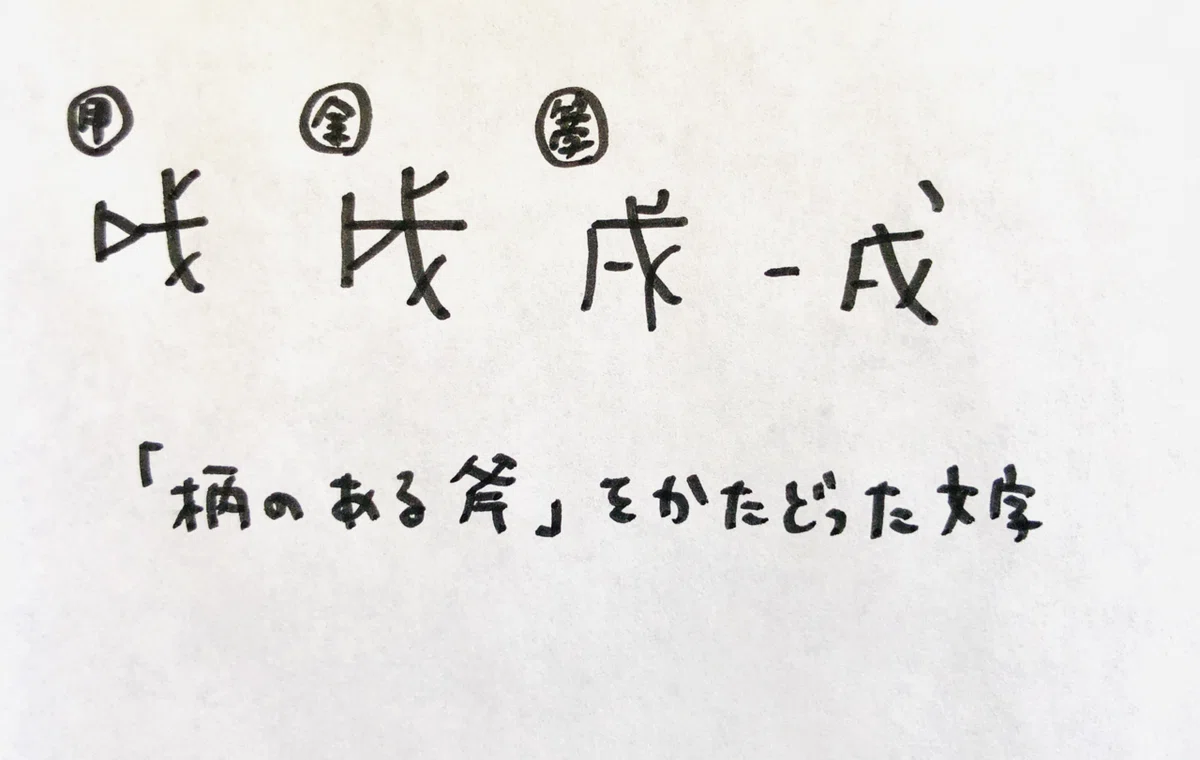 甲 金 篆
- 戌
「柄のある斧」をかたどった文字